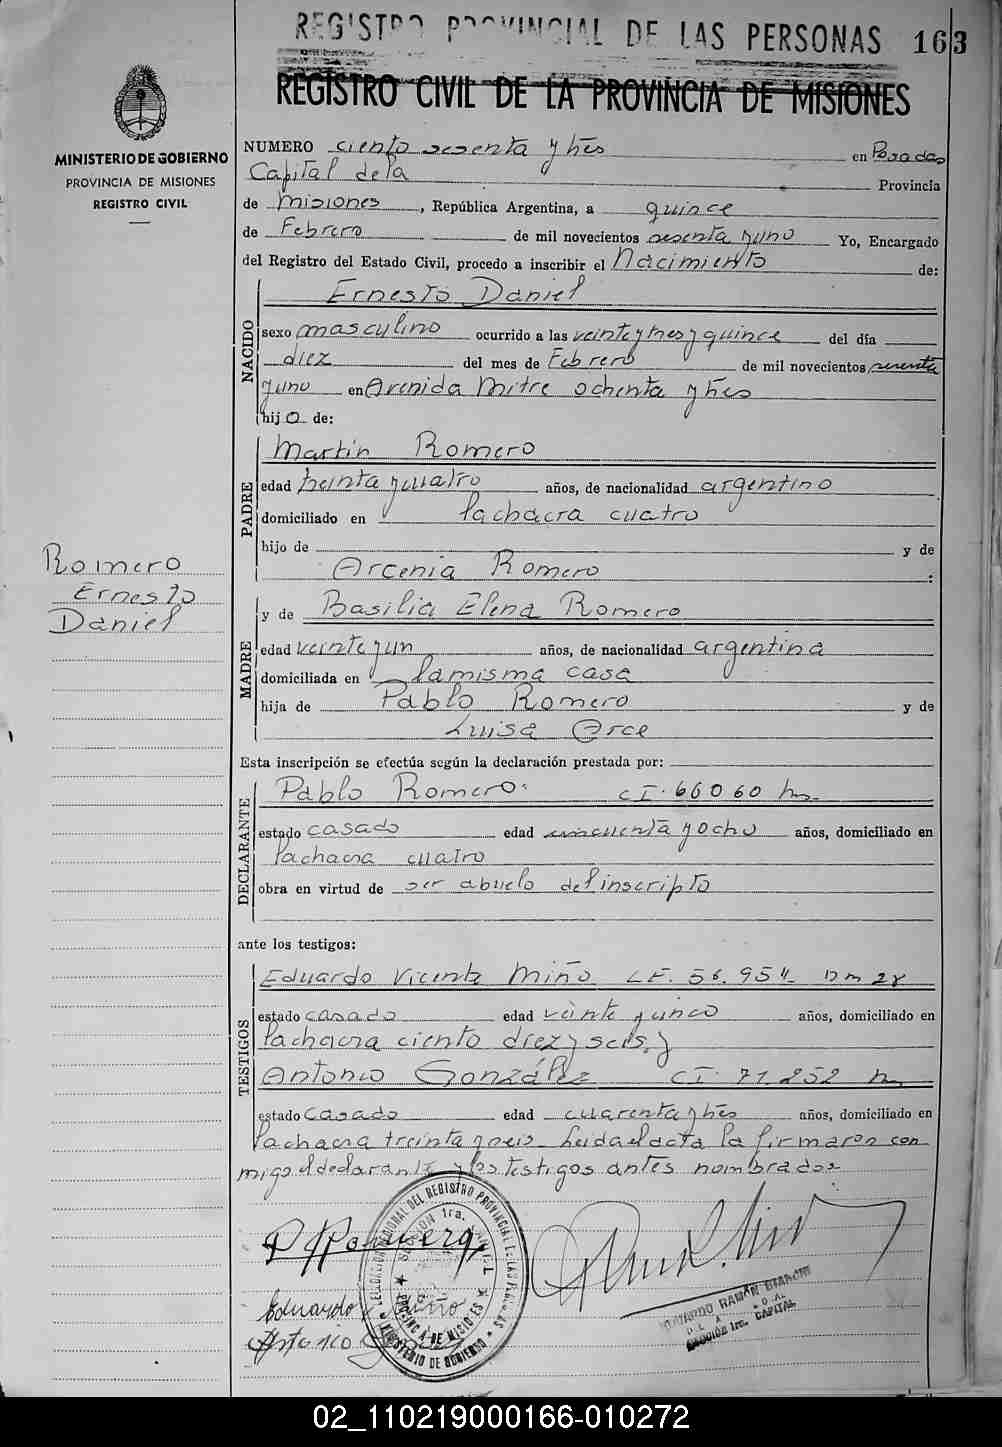 REGISTRO PROVINCIAL DE LAS PERSONAS 163
REGISTRO CIVIL DE LA PROVINCIA DE MISIONES
MINISTERIO DE GOBIERNO
PROVINCIA DE MISIONES
REGISTRO CIVIL
NUMERO ciento sesenta y tres en Posadas
Capital de la Provincia
de Misiones, República Argentina, a quince
de Febrero de mil novecientos sesenta y uno Yo, Encargado
del Registro del Estado Civil, procedo a inscribir el Nacimiento de:
NACIDO
Ernesto Daniel
sexo masculino ocurrido a las veinte y tres y quince del día
diez del mes de Febrero de mil novecientos sesenta
y uno en Avenida Mitre ochenta y tres
hijo de:
PADRE
Martin Romero
edad treinta y cuatro años, de nacionalidad argentino
domiciliado en la chacra cuatro
hijo de y de
Arcenia Romero
MADRE
y de Basilia Elena Romero
edad veinte y un años, de nacionalidad argentina
domiciliada en la misma casa
hija de Pablo Romero y de
Luisa Arce
Romero
Ernesto
Daniel
Esta inscripción se efectúa según la declaración prestada por:
DECLARANTE
Pablo Romero. CI. 66060
estado casado edad cincuenta y ocho años, domiciliado en
la chacra cuatro
obra en virtud de ser abuelo del inscripto
ante los testigos:
TESTIGOS
Eduardo Vicente Miño LE. DM 28
estado casado edad veinte y cinco años, domiciliado en
la chacra ciento diez y seis y
Antonio González CI. 71.252
estado casado edad cuarenta y tres años, domiciliado en
la chacra treinta y seis Leida el acta la firmaron con
migo el declarante y los testigos antes nombrados
Eduardo Miño
Antonio
DELEGACION REGIONAL DEL REGISTRO PROVINCIAL DE LAS PERSONAS
SECCION 1ra.
PROVINCIA DE MISIONES
MINISTERIO DE GOBIERNO
RAMÓN BIANCHI
SECCIÓN 1ra. CAPITAL
02_110219000166-010272